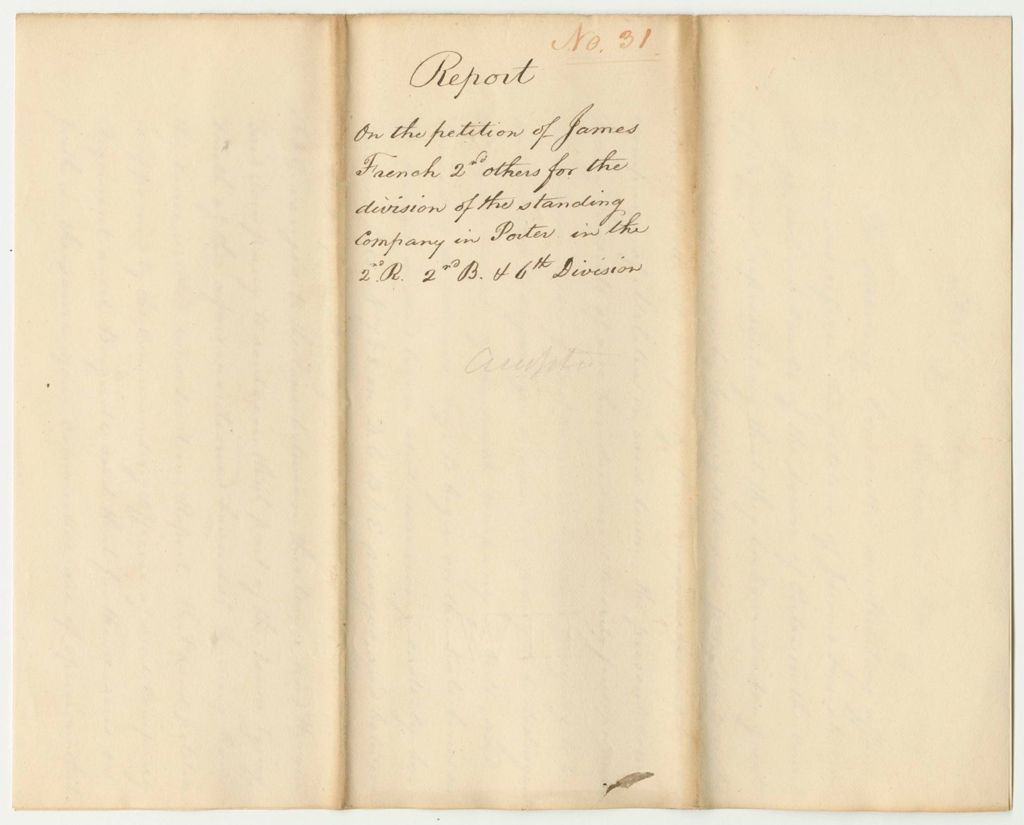 No. 31
Report
On the petition of James
French 2nd others for the
division of the standing
Company in Porter in the
2nd R. 2nd B. & 6th Division